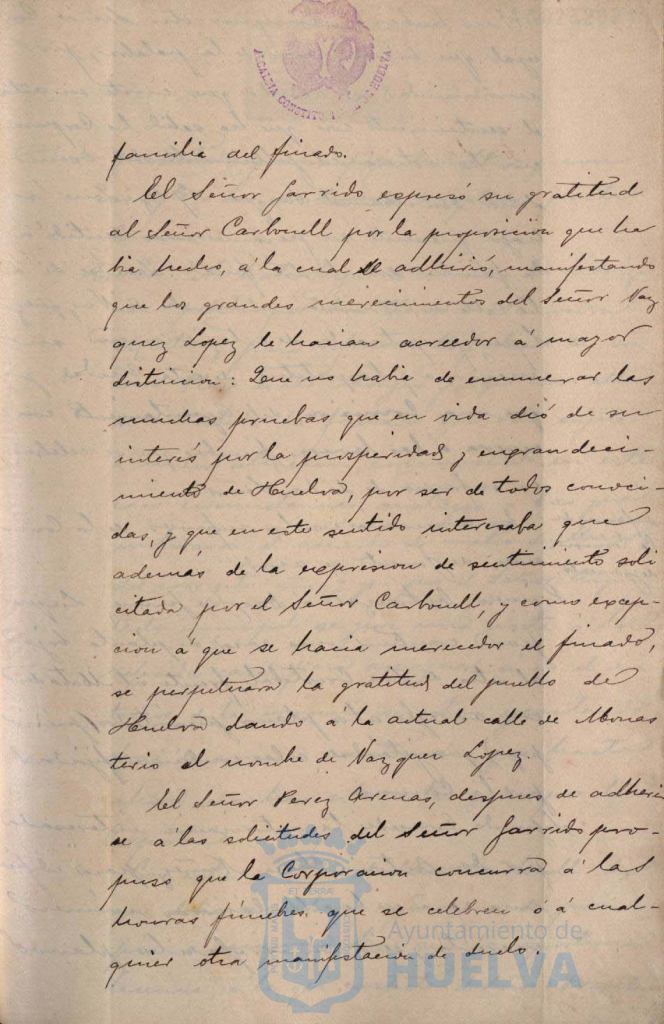 ALCALDIA CONSTITU HUELVA
familia del finado.
El Señor Garrido expresó su gratitud
al Señor Carbonell por la proposicion que ha
bia hecho, á la cual se adhirió, manifestando
que los grandes merecimientos del Señor Vaz
quez Lopez le hacian acreedor á mayor
distincion: Que no habia de enumerar las
muchas pruebas que en vida dió de su
interés por la prosperidad y engrandeci-
miento de Huelva, por ser de todos conoci-
das, y que en este sentido interesaba que
además de la expresion de sentimiento soli
citada por el Señor Carbonell, y como excep-
cion á que se hacia merecedor el finado,
se perpetuara la gratitud del pueblo de
Huelva dando á la actual calle de Monas
terio el nombre de Vazquez Lopez.
El Señor Perez Arenas, despues de adherir
se á las solicitudes del Señor Garrido pro-
puso que la Corporacion concurra á las
honras fúnebres que se celebren ó á cual-
quier otra manifestacion de duelo.
Ayuntamiento de
HUELVA